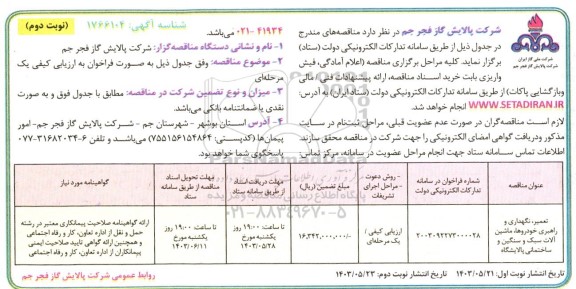 شناسه آگهی: ۱۷۶۶۱۰۴
(نوبت دوم)
شرکت ملی گاز ایران
شرکت پالایش گاز فجر جم
شرکت پالایش گاز فجر جم در نظر دارد مناقصه‌های مندرج
در جدول ذیل از طریق سامانه تدارکات الکترونیکی دولت (ستاد)
برگزار نماید. کلیه مراحل برگزاری مناقصه (اعلام آمادگی، فیش
واریزی بابت خرید اسناد مناقصه، ارائه پیشنهادات فنی، مالی
وبازگشایی پاکات) از طریق سامانه تدارکات الکترونیکی دولت (ستاد ایران) به آدرس:
WWW.SETADIRAN.IR انجام خواهد شد.
لازم است مناقصه‌گران در صورت عدم عضویت قبلی، مراحل ثبت‌نام در سایت
مذکور ودریافت گواهی امضای الکترونیکی را جهت شرکت در مناقصه محقق سازند
اطلاعات تماس سامانه ستاد جهت انجام مراحل عضویت در سامانه، مرکز تماس
۴۱۹۳۴-۰۲۱ می‌باشد.
۱- نام و نشانی دستگاه مناقصه‌گزار: شرکت پالایش گاز فجر جم
۲- موضوع مناقصه: وفق جدول ذیل به صورت فراخوان به ارزیابی کیفی یک
مرحله‌ای
۳- میزان و نوع تضمین شرکت در مناقصه: مطابق با جدول فوق و به صورت
نقدی یا ضمانتنامه بانکی می‌باشد.
۴- آدرس استان بوشهر - شهرستان جم - شرکت پالایش گاز فجر جم- امور
پیمان‌ها (کدپستی: ۷۵۵۱۵۶۱۵۴۸۶۴) می‌باشد و تلفن ۶-۳۱۶۸۲۰۳۴-۰۷۷
پاسخگوی شما خواهد بود.
عنوان مناقصه
شماره فراخوان در سامانه تدارکات الکترونیکی دولت
روش دعوت - مراحل اجرای تشریفات
مبلغ تضمین (ریال)
مهلت دریافت اسناد از طریق سامانه ستاد
مهلت تحویل اسناد مناقصه از طریق سامانه ستاد
گواهینامه مورد نیاز
تعمیر، نگهداری و راهبری خودروها، ماشین آلات سبک و سنگین و ساختمانی پالایشگاه
۲۰۰۳۰۹۲۲۷۳۰۰۰۰۲۸
ارزیابی کیفی / یک مرحله‌ای
۱۶,۳۴۲,۰۰۰,۰۰۰/-
تا ساعت ۱۹:۰۰ روز یکشنبه مورخ ۱۴۰۳/۰۵/۲۸
تا ساعت ۱۹:۰۰ روز یکشنبه مورخ ۱۴۰۳/۰۶/۱۱
ارائه گواهینامه صلاحیت پیمانکاری معتبر در رشته حمل و نقل از اداره تعاون، کار و رفاه اجتماعی و همچنین ارائه گواهی تایید صلاحیت ایمنی پیمانکاران از اداره تعاون، کار و رفاه اجتماعی
تاریخ انتشار نوبت اول: ۱۴۰۳/۰۵/۲۱ تاریخ انتشار نوبت دوم: ۱۴۰۳/۰۵/۲۳
روابط عمومی شرکت پالایش گاز فجر جم
۰۲۱-۸۸۳۴۹۶۷۰-۵